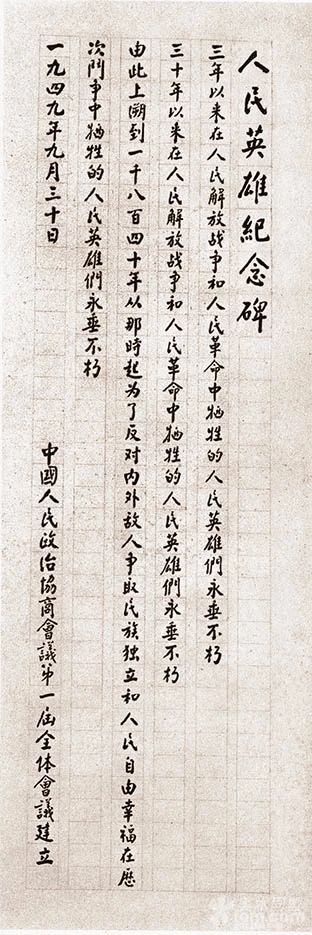 人民英雄紀念碑
三年以来在人民解放战争和人民革命中牺牲的人民英雄們永垂不朽
三十年以来在人民解放战争和人民革命中牺牲的人民英雄們永垂不朽
由此上溯到一千八百四十年从那時起为了反对内外敌人争取民族独立和人民自由幸福在歷
次鬥争中牺牲的人民英雄們永垂不朽
一九四九年九月三十日
中國人民政治協商會議第一屆全体會議建立
tom.com